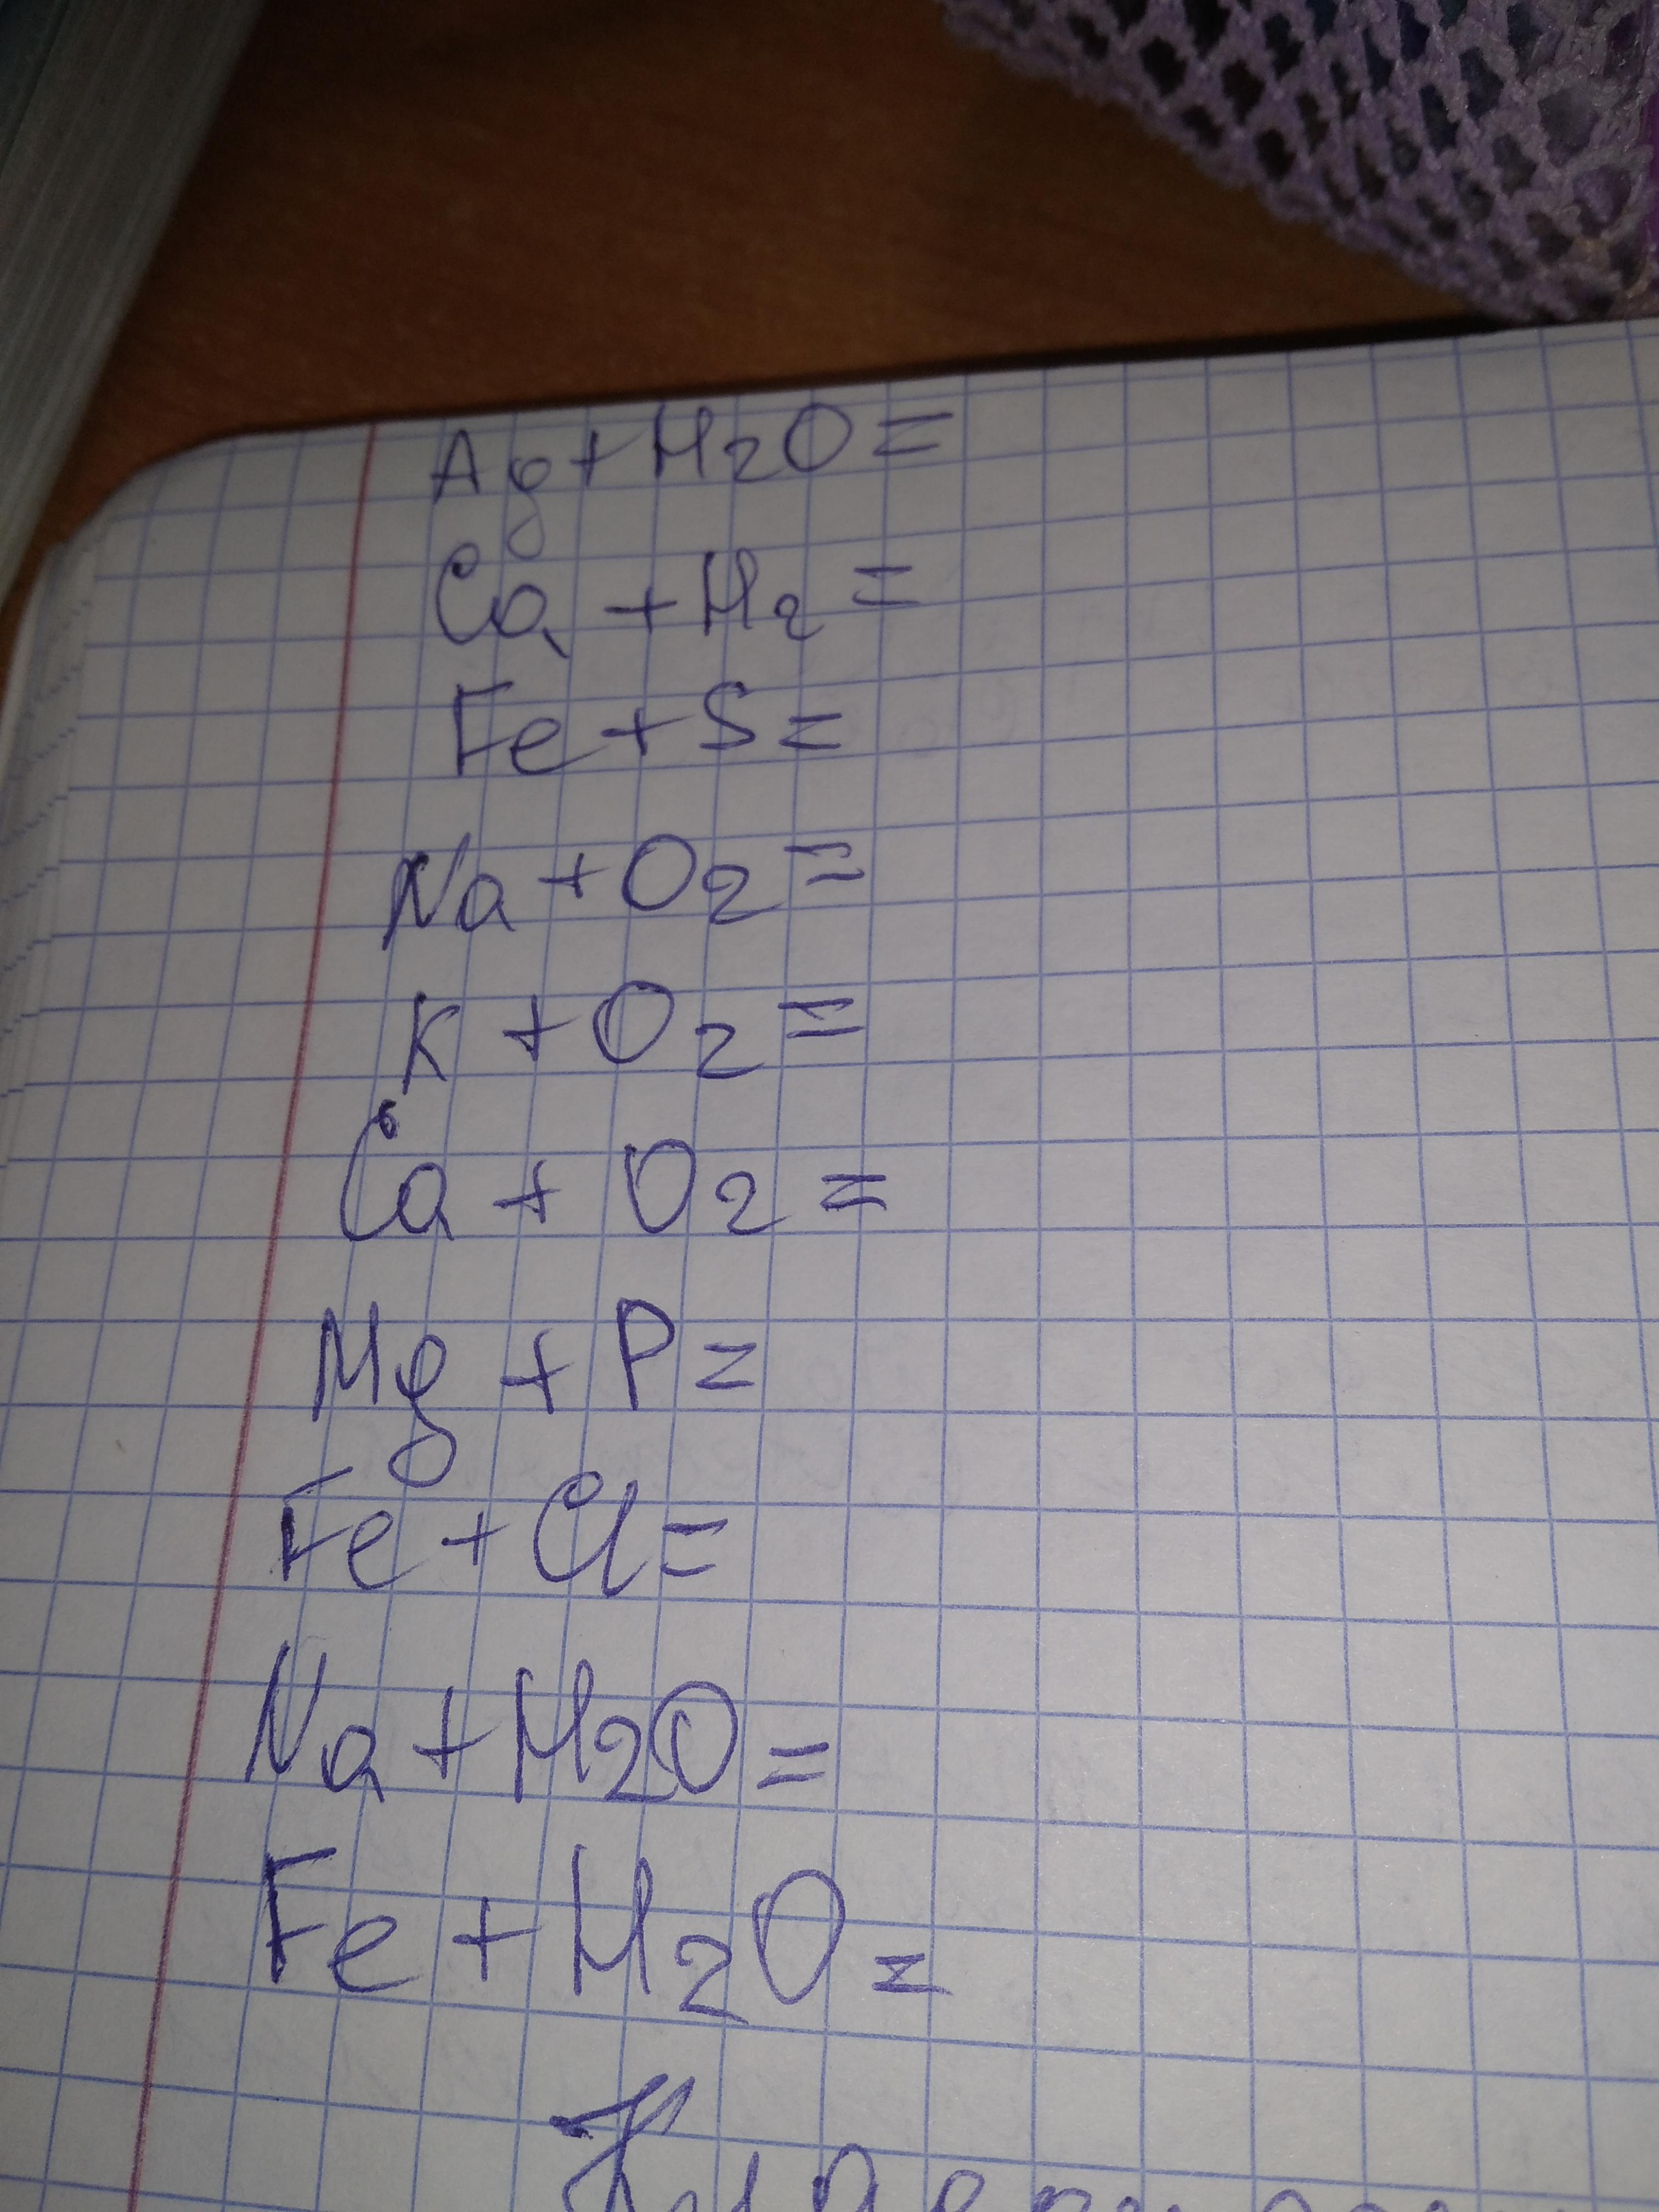 Ag + H2O =
Ca + H2 =
Fe + S =
Na + O2 =
K + O2 =
Ca + O2 =
Mg + P =
Fe + Cl =
Na + H2O =
Fe + H2O =